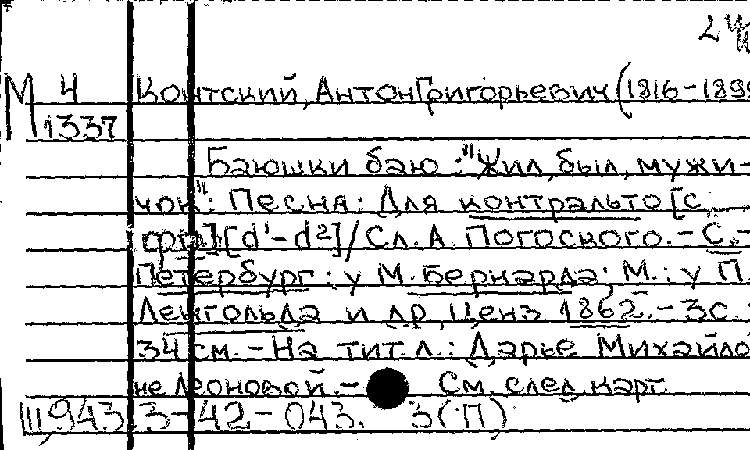 М 4 Контский, Антон Григорьевич (1816-1899
1337
Баюшки баю : "Жил, был, мужи-
чок" : Песня : Для контральто [с
фп] [d¹-d²] / Сл. А. Погоского. - С.-
Петербург : у М. Бернарда ; М. : у П.
Ленгольда и др, ценз 1862. - 3 с.
34 см. - На тит. л. : Дарье Михайло
не Леоновой. - См. след. карт.
III, 943. 3-42-043. 3(П)